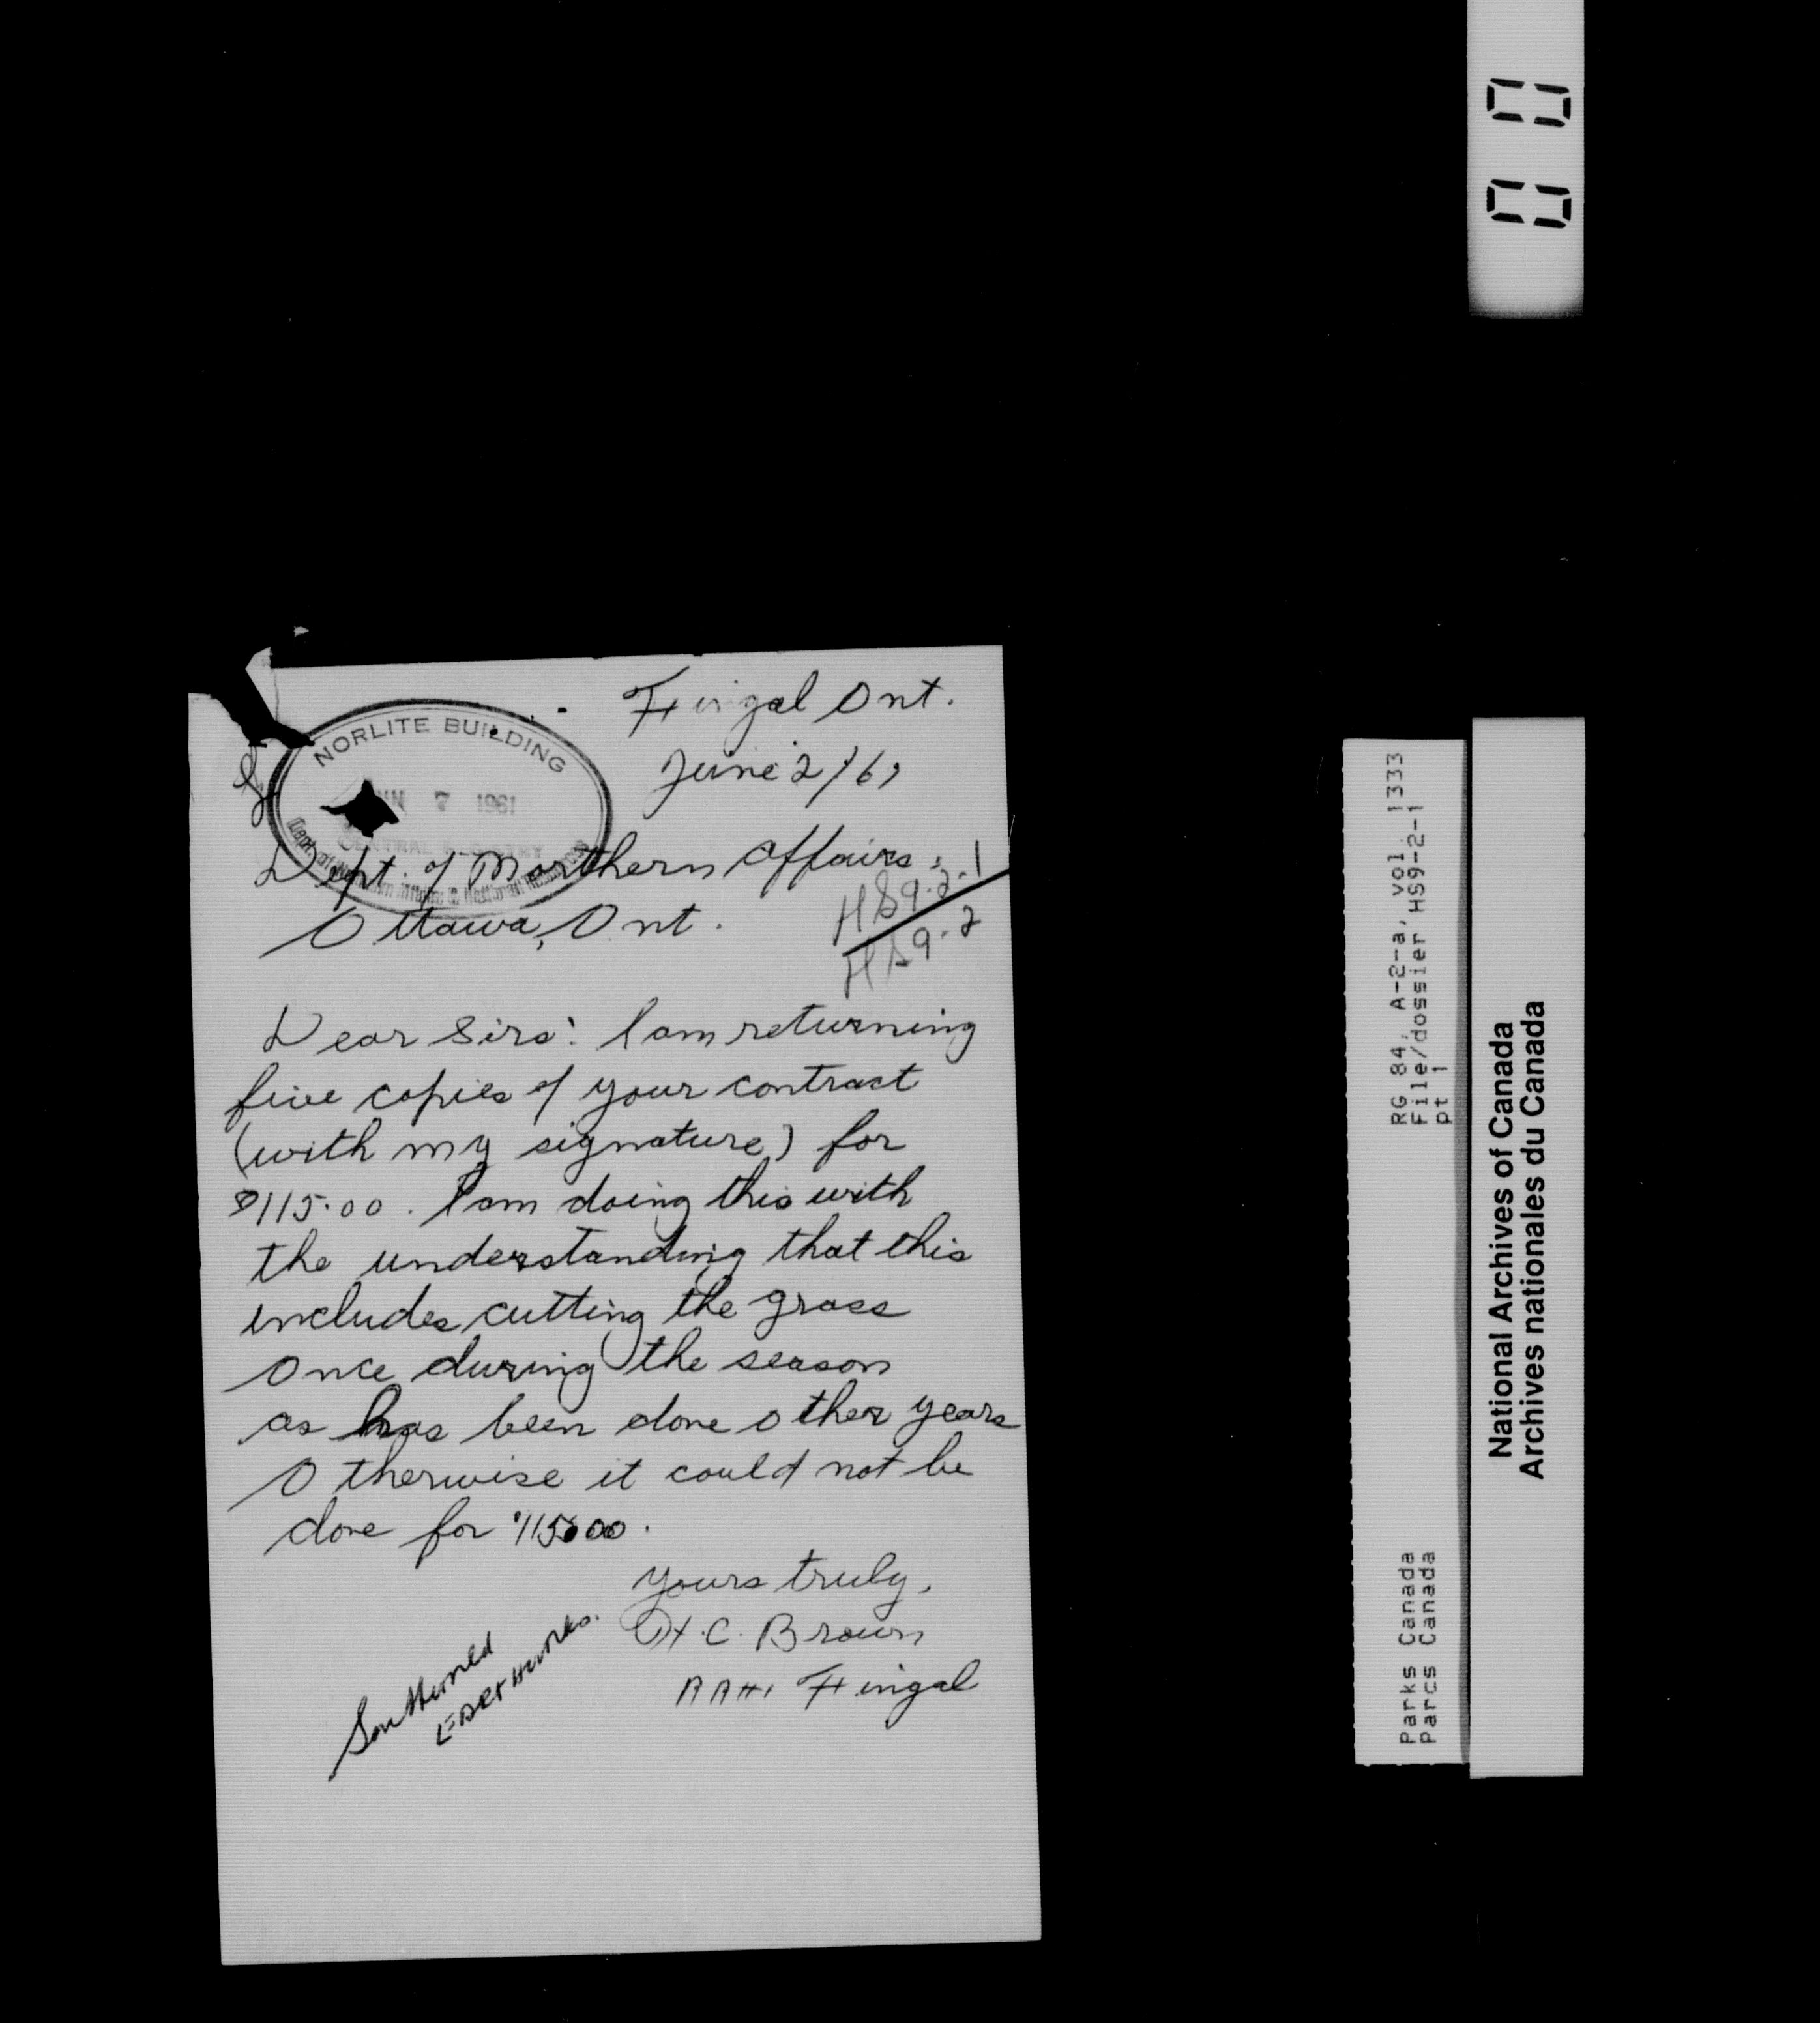 Fingal Ont.
June 2/61
NORLITE BUILDING
JUN 7 1961
CENTRAL REGISTRY
Dept. of Northern Affairs & National Resources
Dept. of Northern Affairs,
Ottawa, Ont.
HS9-2-1
HS9-2
Dear Sirs: I am returning
five copies of your contract
(with my signature) for
$115.00. I am doing this with
the understanding that this
includes cutting the grass
once during the season
as has been done other years
Otherwise it could not be
done for $115.00.
Yours truly,
H.C. Brown
RR#1 Fingal
Southwold
Earthworks.
00
RG 84, A-2-a, vol. 1333
File/dossier HS9-2-1
pt 1
Parks Canada
Parcs Canada
National Archives of Canada
Archives nationales du Canada